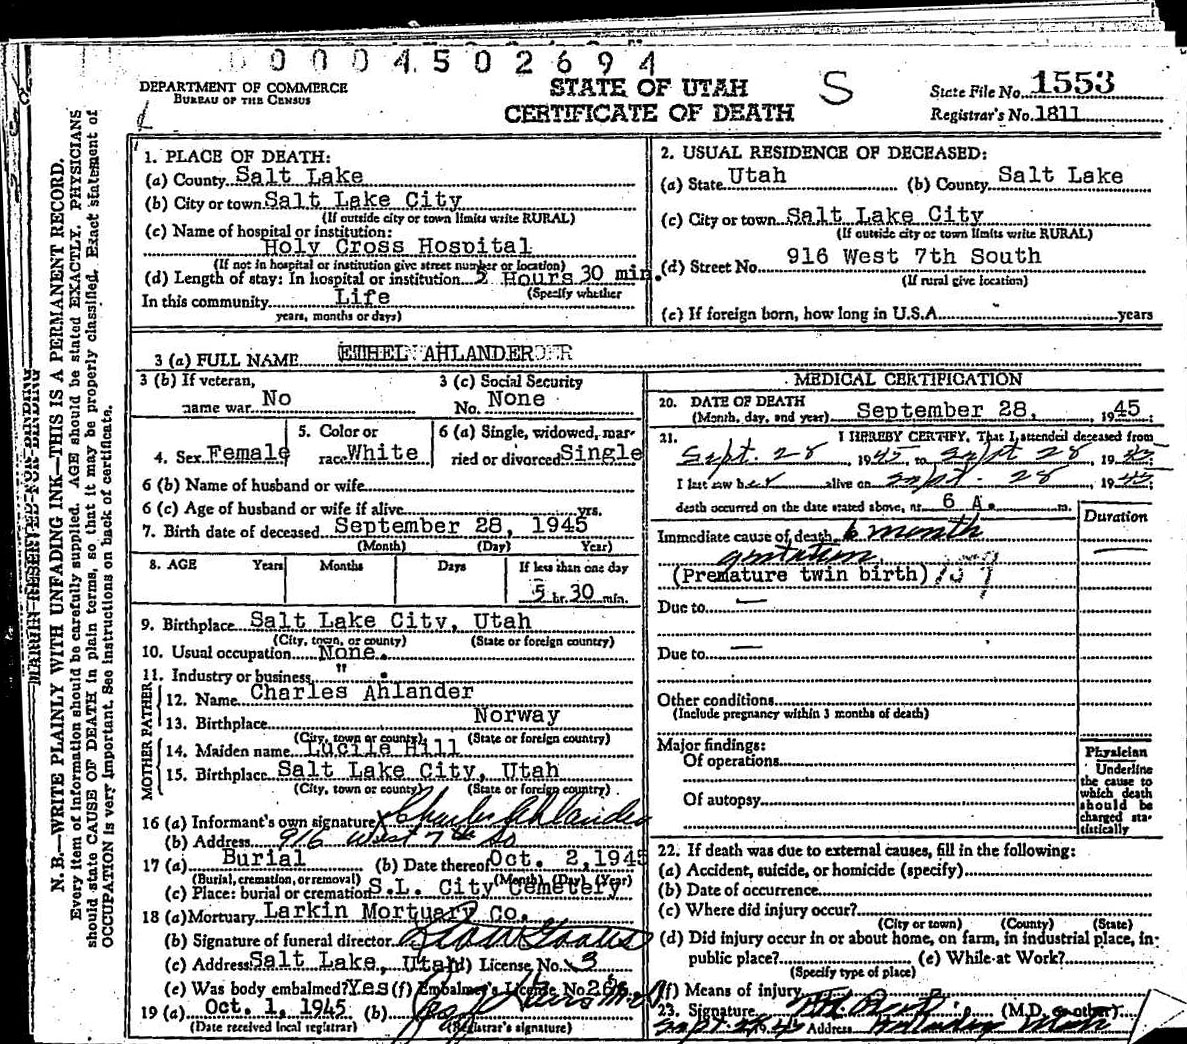 0 0 0 4 5 0 2 6 9 4
DEPARTMENT OF COMMERCE
BUREAU OF THE CENSUS
STATE OF UTAH
CERTIFICATE OF DEATH
S
State File No. 1553
Registrar's No. 1811
N. B.—WRITE PLAINLY WITH UNFADING INK—THIS IS A PERMANENT RECORD.
Every item of information should be carefully supplied. AGE should be stated EXACTLY. PHYSICIANS
should state CAUSE OF DEATH in plain terms, so that it may be properly classified. Exact statement of
OCCUPATION is very important. See instructions on back of certificate.
MARGIN RESERVED FOR BINDING
1. PLACE OF DEATH:
(a) County Salt Lake
(b) City or town Salt Lake City
(If outside city or town limits write RURAL)
(c) Name of hospital or institution:
Holy Cross Hospital
(If not in hospital or institution give street number or location)
(d) Length of stay: In hospital or institution 5 Hours 30 min.
(Specify whether
In this community Life
years, months or days)
2. USUAL RESIDENCE OF DECEASED:
(a) State Utah (b) County Salt Lake
(c) City or town Salt Lake City
(If outside city or town limits write RURAL)
(d) Street No. 916 West 7th South
(If rural give location)
(e) If foreign born, how long in U.S.A. years
3 (a) FULL NAME ETHEL AHLANDER
3 (b) If veteran, name war No
3 (c) Social Security No. None
4. Sex Female
5. Color or race White
6 (a) Single, widowed, married or divorced Single
6 (b) Name of husband or wife
6 (c) Age of husband or wife if alive yrs.
7. Birth date of deceased September 28, 1945
(Month) (Day) Year)
8. AGE Years Months Days If less than one day
5 hr. 30 min.
9. Birthplace Salt Lake City, Utah
(City, town, or county) (State or foreign country)
10. Usual occupation None.
11. Industry or business " .
FATHER
12. Name Charles Ahlander
13. Birthplace Norway
(City, town or county) (State or foreign country)
MOTHER
14. Maiden name Lucile Hill
15. Birthplace Salt Lake City, Utah
(City, town or county) (State or foreign country)
16 (a) Informant's own signature Charles Ahlander
(b) Address 916 West 7th So
17 (a) Burial (b) Date thereof Oct. 2, 1945
(Burial, cremation, or removal) (Month) (Day) (Year)
(c) Place: burial or cremation S.L. City Cemetery
18 (a) Mortuary Larkin Mortuary Co.
(b) Signature of funeral director
(c) Address Salt Lake, Utah (d) License No. 3
(e) Was body embalmed? Yes (f) Embalmer's License No.
19 (a) Oct. 1, 1945 (b)
(Date received local registrar) (Registrar's signature)
MEDICAL CERTIFICATION
20. DATE OF DEATH
(Month, day, and year) September 28, 1945;
21. I HEREBY CERTIFY, That I attended deceased from
Sept. 28 1945, to Sept 28 1945;
I last saw her alive on Sept. 28 1945;
death occurred on the date stated above, at 6 A. m.
Duration
Immediate cause of death 6 month
gestation
(Premature twin birth) 159
Due to —
Due to —
Other conditions
(Include pregnancy within 3 months of death)
Major findings:
Of operations
Of autopsy
Physician
Underline
the cause to
which death
should be
charged sta-
tistically
22. If death was due to external causes, fill in the following:
(a) Accident, suicide, or homicide (specify)
(b) Date of occurrence
(c) Where did injury occur?
(City or town) (County) (State)
(d) Did injury occur in or about home, on farm, in industrial place, in
public place? (e) While at Work?
(Specify type of place)
(f) Means of injury
23. Signature (M.D. or other)
Address